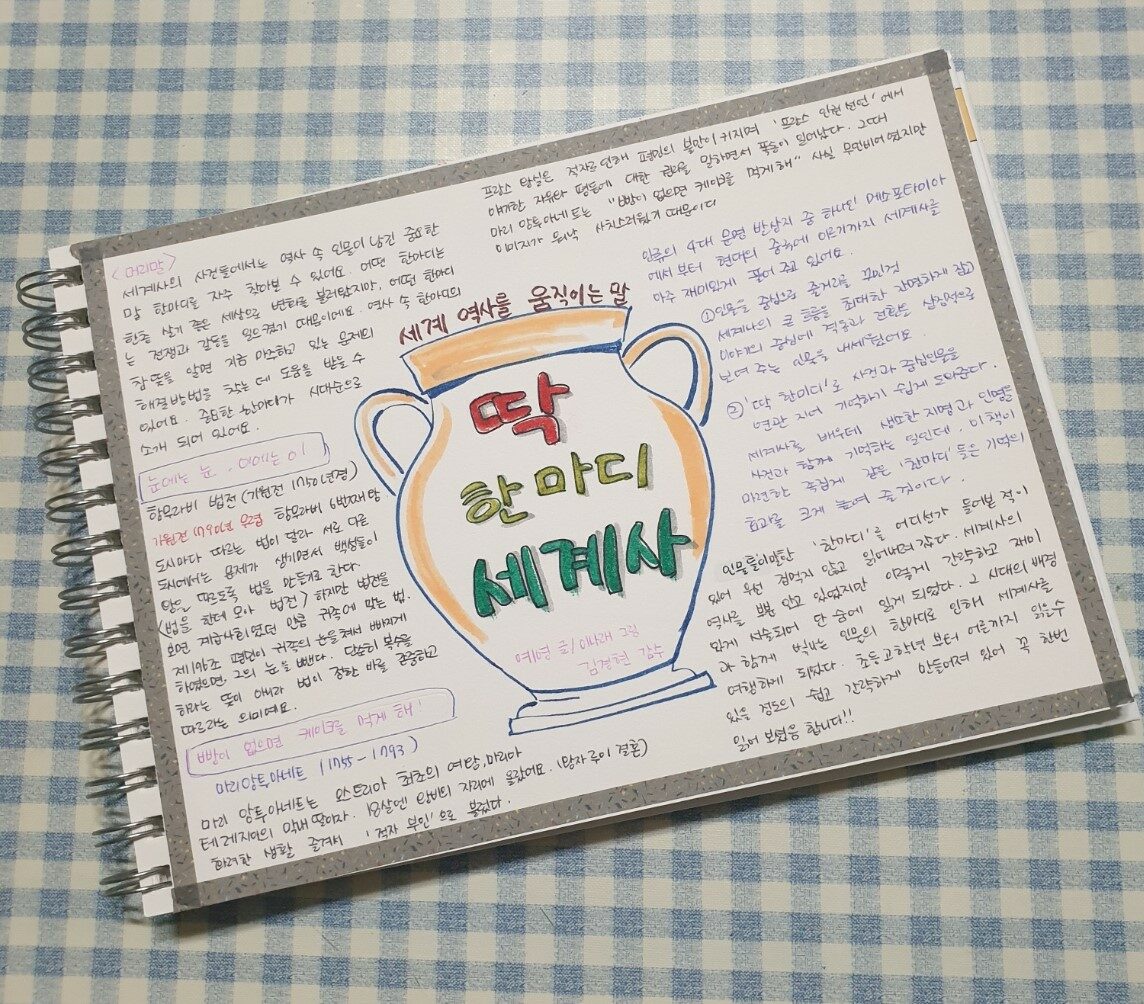 <머리말>
세계사의 사건들에서는 역사 속 인물이 남긴 중요한
말 한마디를 자주 찾아볼 수 있어요. 어떤 한마디는
한층 살기 좋은 세상으로 변화를 불러왔지만, 어떤 한마디
는 전쟁과 갈등을 일으켰기 때문이에요. 역사 속 한마디의
참뜻을 알면 지금 마주하고 있는 문제의
해결방법을 찾는데 도움을 받을 수
있어요. 중요한 한마디가 시대순으로
소개 되어 있어요.
눈에는 눈, 이에는 이
함무라비 법전 (기원전 1750년경)
기원전 1790년 무렵 함무라비 6번째 왕
도시마다 따르는 법이 달라 서로 다른
도시에서는 문제가 생기면서 백성들이
왕을 따르도록 법을 만들기로 한다.
(법을 한데 모아 법전) 하지만 법전을
보면 계급사회였던 만큼 귀족에 맞는 법.
제196조 평민이 귀족의 눈을 쳐서 빠지게
하였으면, 그의 눈을 뺀다. 단순히 복수를
하라는 뜻이 아니라 법이 정한 바를 존중하고
따르라는 의미예요.
빵이 없으면 케이크를 먹게 해!
마리앙투아네트 (1755-1793)
마리 앙투아네트는 오스트리아 최초의 여왕, 마리아
테레지아의 막내 딸이다. 18살엔 왕비의 자리에 올랐어요. (왕자 루이 결혼)
화려한 생활 즐겨서 '적자 부인'으로 불렸다.
프랑스 왕실은 적자로 인해 평민의 불만이 커지며 '프랑스 인권 선언'에서
얘기한 자유와 평등에 대한 권리를 말하면서 폭동이 일어났다. 그때
마리 앙투아네트는 "빵이 없으면 케이크를 먹게 해" 사실 무근비어였지만
이미지가 워낙 사치스러웠기 때문이다
세계 역사를 움직이는 말
딱
한마디
세계사
예영 글/이나래 그림
김경현 감수
인류의 4대 문명 발상지 중 하나인 메소포타미아
에서부터 현대의 중국에 이르기까지 세계사를
아주 재미있게 풀어 주고 있어요.
①인물을 중심으로 줄거리를 꾸민것
세계사의 큰 흐름을 최대한 간명하게 잡고
이야기의 중심에 적들과 전환을 상징적으로
보여 주는 인물을 내세웠어요
②'딱 한마디'로 사건과 중심인물을
연관 지어 기억하기 쉽게 도와준다.
세계사를 배우는데 생소한 지명과 인명을
사건과 함께 기억하는 일인데 이 책이
마련한 즐겁게 같은 '한마디'들은 기억의
효과를 크게 높여 줄 것이다.
인물들이 말한 '한마디'를 어디선가 들어본 적이
있어 우선 겁먹지 않고 읽어내려 갔다. 세계사의
역사를 뽐 안고 있었지만 이렇게 간략하고 재미
있게 서술되어 단 숨에 읽게 되었다. 그 시대의 배경
과 함께 박히는 인물의 한마디로 인해 세계사를
여행하게 되었다. 초등고학년 부터 어른까지 읽을수
있을 정도의 쉽고 간략하게 만들어져 있어 꼭 한번
읽어 보셨음 합니다!!